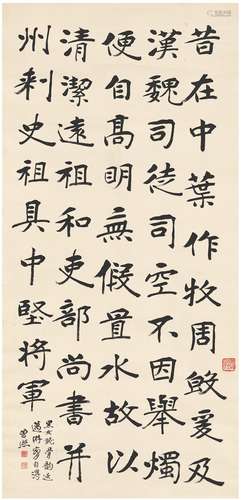 昔在中葉作牧周殷爰及
漢魏司徒司空不因舉燭
便自高明無假置水故以
清潔遠祖和吏部尚書并
州刺史祖具中堅將軍
黑女誌骨韵近
曾熙